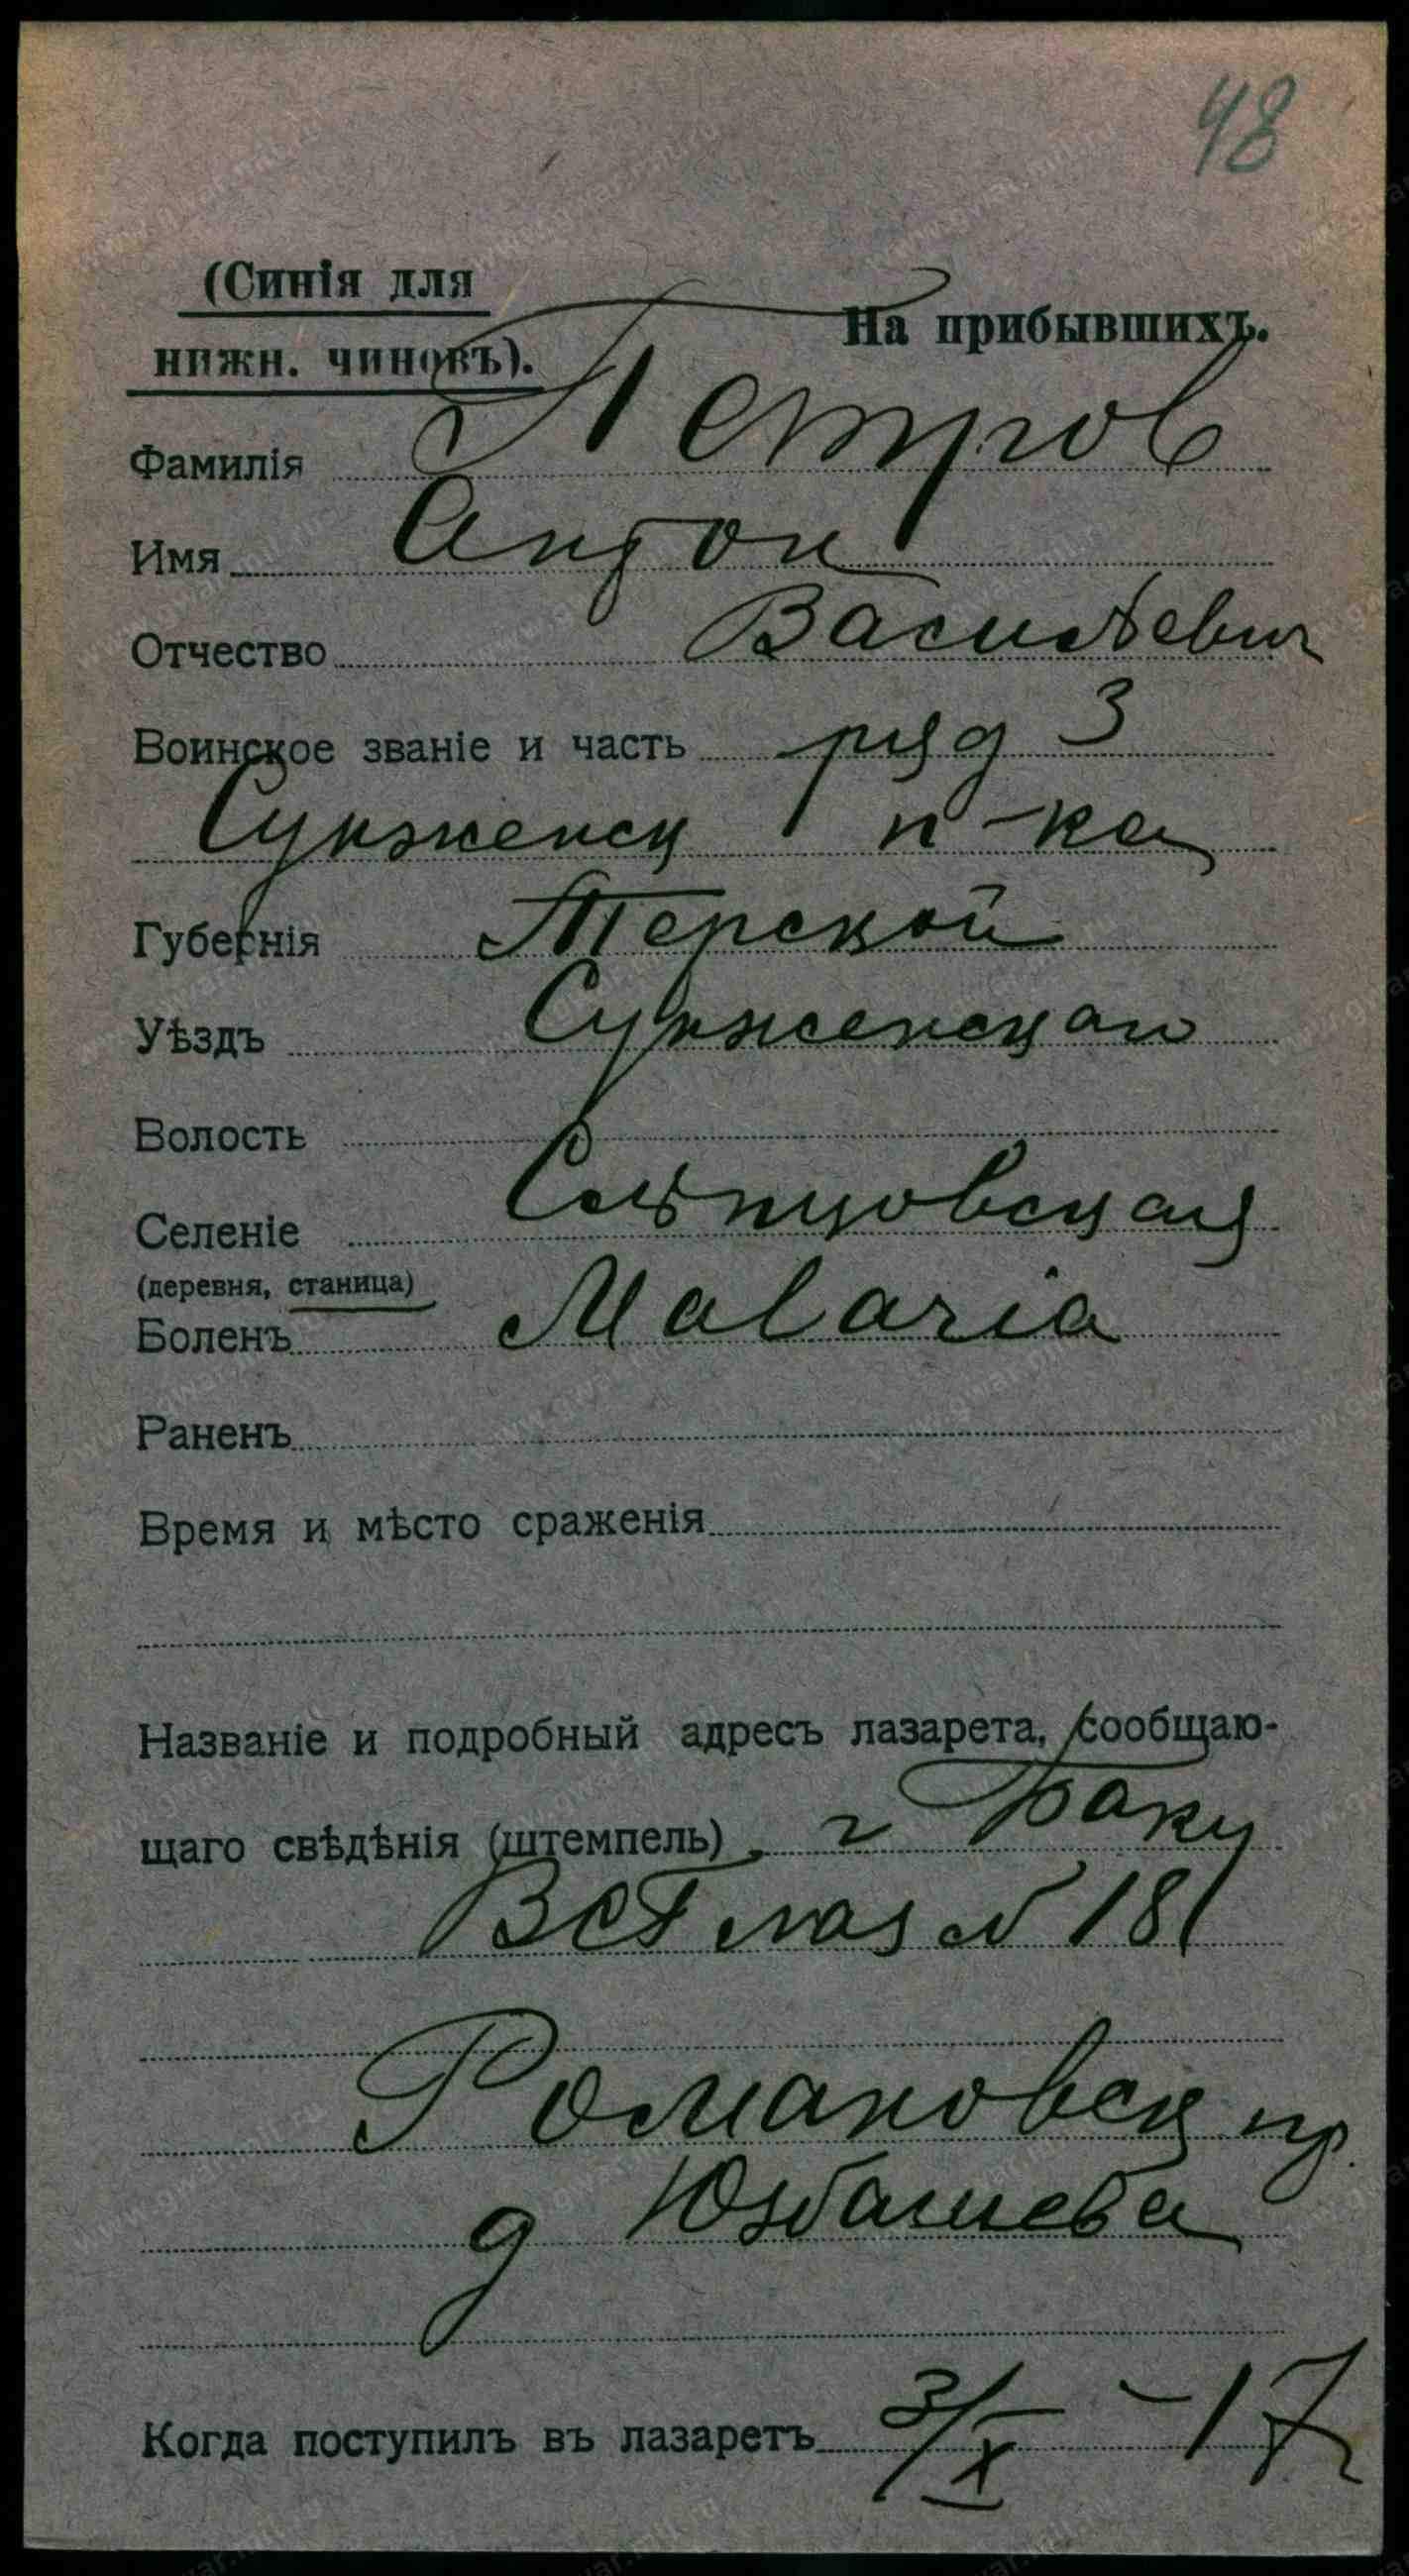 48
(Синія для
нижн. чиновъ).
На прибывшихъ.
Фамилія Петров
Имя Антон
Отчество Васильевич
Воинское званіе и часть ряд 3
Сунженск п-ка
Губернія Терской
Уѣздъ Сунженскаго
Волость
Селеніе Слѣпцовская
(деревня, станица)
Боленъ Malaria
Раненъ
Время и мѣсто сраженія
Названіе и подробный адресъ лазарета, сообщаю-
щаго свѣдѣнія (штемпель) г Баку
ВСГ лаз N 181
Романовск пр.
д Юзбашева
Когда поступилъ въ лазаретъ 3/X - 17